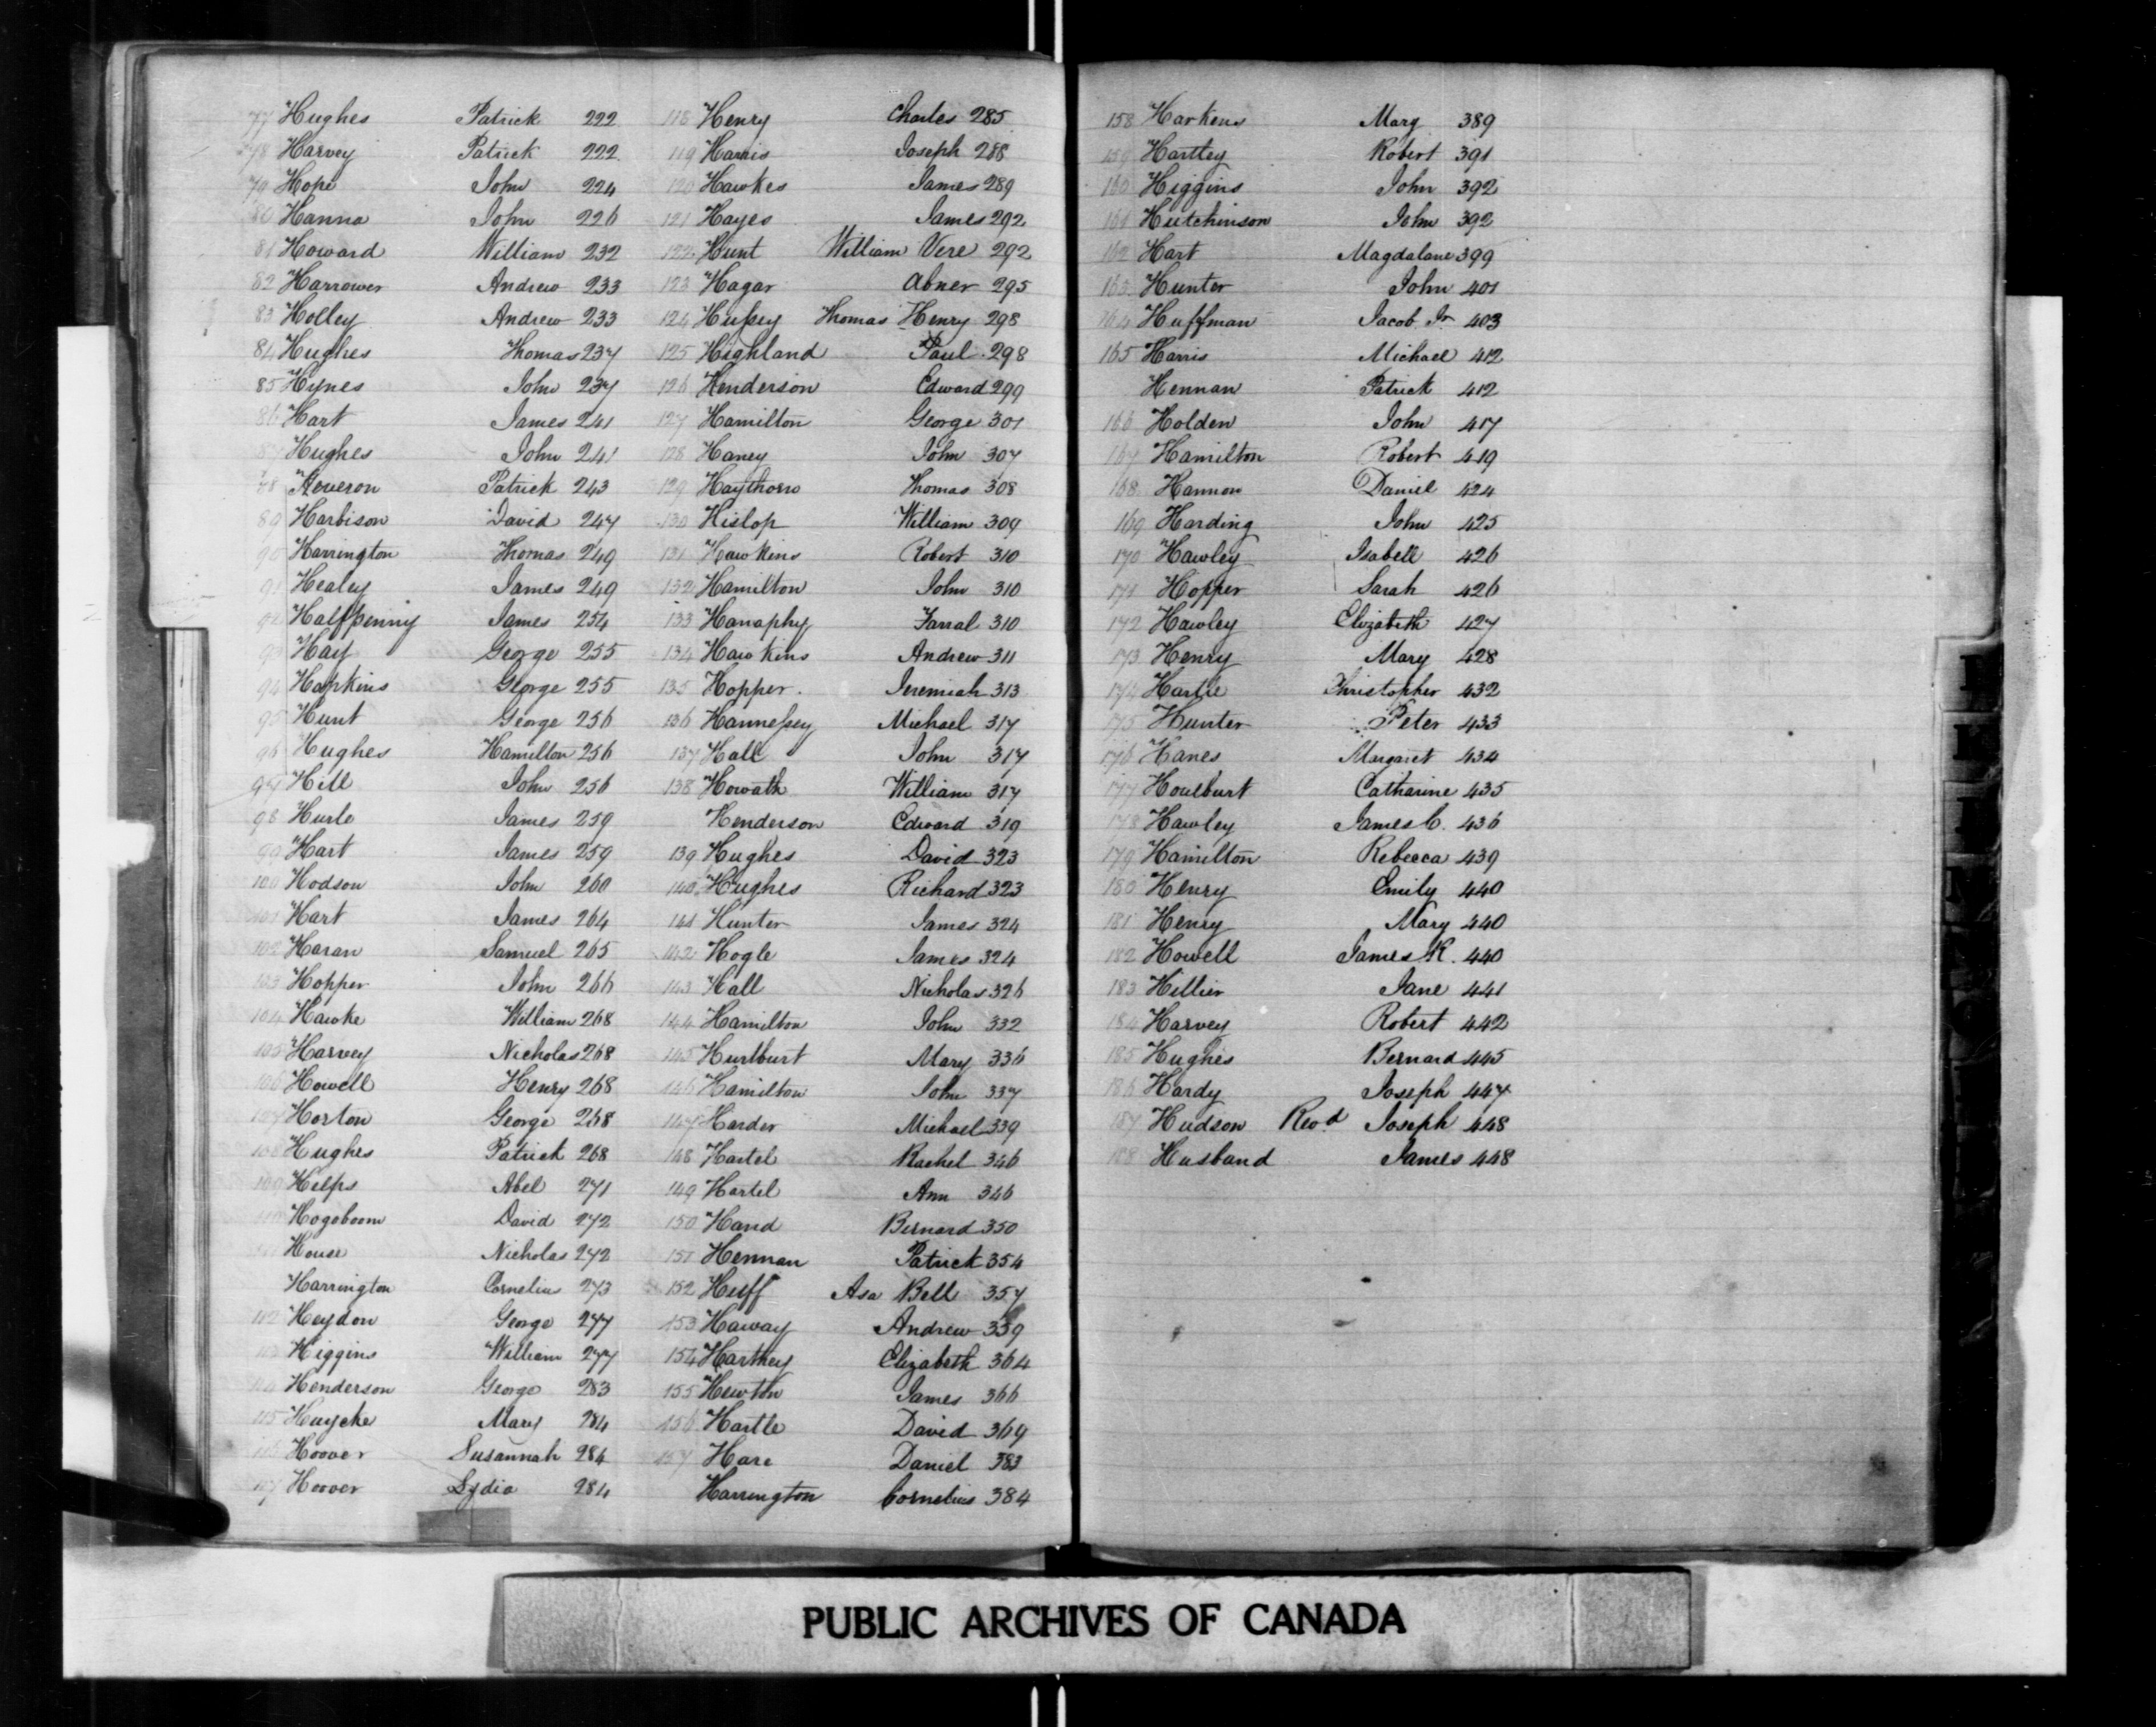 77 Hughes Patrick 222
78 Harvey Patrick 222
79 Hope John 224
80 Hanna John 226
81 Howard William 232
82 Harrower Andrew 233
83 Holley Andrew 233
84 Hughes Thomas 237
85 Hynes John 237
86 Hart James 241
87 Hughes John 241
88 Heveron Patrick 243
89 Harbison David 247
90 Harrington Thomas 249
91 Healey James 249
92 Halfpenny James 254
93 Hay George 255
94 Hopkins George 255
95 Hunt George 256
96 Hughes Hamilton 256
97 Hill John 256
98 Hurle James 259
99 Hart James 259
100 Hodson John 260
101 Hart James 264
102 Haran Samuel 265
103 Hopper John 266
104 Hawke William 268
105 Harvey Nicholas 268
106 Howell Henry 268
107 Horton George 268
108 Hughes Patrick 268
109 Helps Abel 271
110 Hogoboom David 272
111 House Nicholas 272
Harrington Cornelius 273
112 Heydon George 277
113 Higgins William 277
114 Henderson George 283
115 Huycke Mary 284
116 Hoover Susannah 284
117 Hoover Lydia 284
118 Henry Charles 285
119 Harris Joseph 288
120 Hawkes James 289
121 Hayes James 292
122 Hunt William Vere 292
123 Hagar Abner 295
124 Hussey Thomas Henry 298
125 Highland Paul 298
126 Henderson Edward 299
127 Hamilton George 301
128 Haney John 307
129 Haythorn Thomas 308
130 Hislop William 309
131 Hawkins Robert 310
132 Hamilton John 310
133 Hanaphy Farral 310
134 Hawkins Andrew 311
135 Hopper Jeremiah 313
136 Hannessey Michael 317
137 Hall John 317
138 Howath William 317
Henderson Edward 319
139 Hughes David 323
140 Hughes Richard 323
141 Hunter James 324
142 Hogle James 324
143 Hall Nicholas 326
144 Hamilton John 332
145 Hurlburt Mary 336
146 Hamilton John 337
147 Harder Michael 339
148 Hartel Rachel 346
149 Hartel Ann 346
150 Hand Bernard 350
151 Hennan Patrick 354
152 Huff Asa Bell 357
153 Haway Andrew 359
154 Harthey Elizabeth 364
155 Hewton James 366
156 Hartle David 369
157 Hare Daniel 383
Harrington Cornelius 384
158 Harkens Mary 389
159 Hartley Robert 391
160 Higgins John 392
161 Hutchinson John 392
162 Hart Magdalane 399
163 Hunter John 401
164 Huffman Jacob Jr 403
165 Harris Michael 412
Hennan Patrick 412
166 Holden John 417
167 Hamilton Robert 419
168 Hannon Daniel 424
169 Harding John 425
170 Hawley Isabell 426
171 Hopper Sarah 426
172 Hawley Elizabeth 427
173 Henry Mary 428
174 Hartle Christopher 432
175 Hunter Peter 433
176 Hanes Margaret 434
177 Houlburt Catharine 435
178 Hawley James C. 436
179 Hamilton Rebecca 439
180 Henry Emily 440
181 Henry Mary 440
182 Howell James K. 440
183 Hillier Jane 441
184 Harvey Robert 442
185 Hughes Bernard 445
186 Hardy Joseph 447
187 Hudson Revd Joseph 448
188 Husband James 448
PUBLIC ARCHIVES OF CANADA